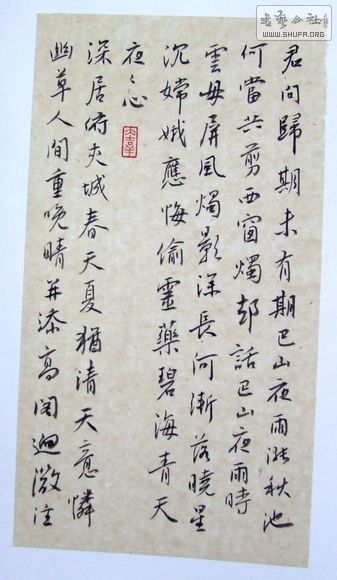 書藝公社
WWW.SHUFA.ORG
君问歸期未有期巴山夜雨涨秋池
何當共剪西窗燭却話巴山夜雨時
雲母屏風燭影深長河漸落曉星
沉嫦娥應悔偷靈藥碧海青天
夜々心
深居俯夾城春天夏猶清天意憐
幽草人間重晚晴并添高阁迥微注